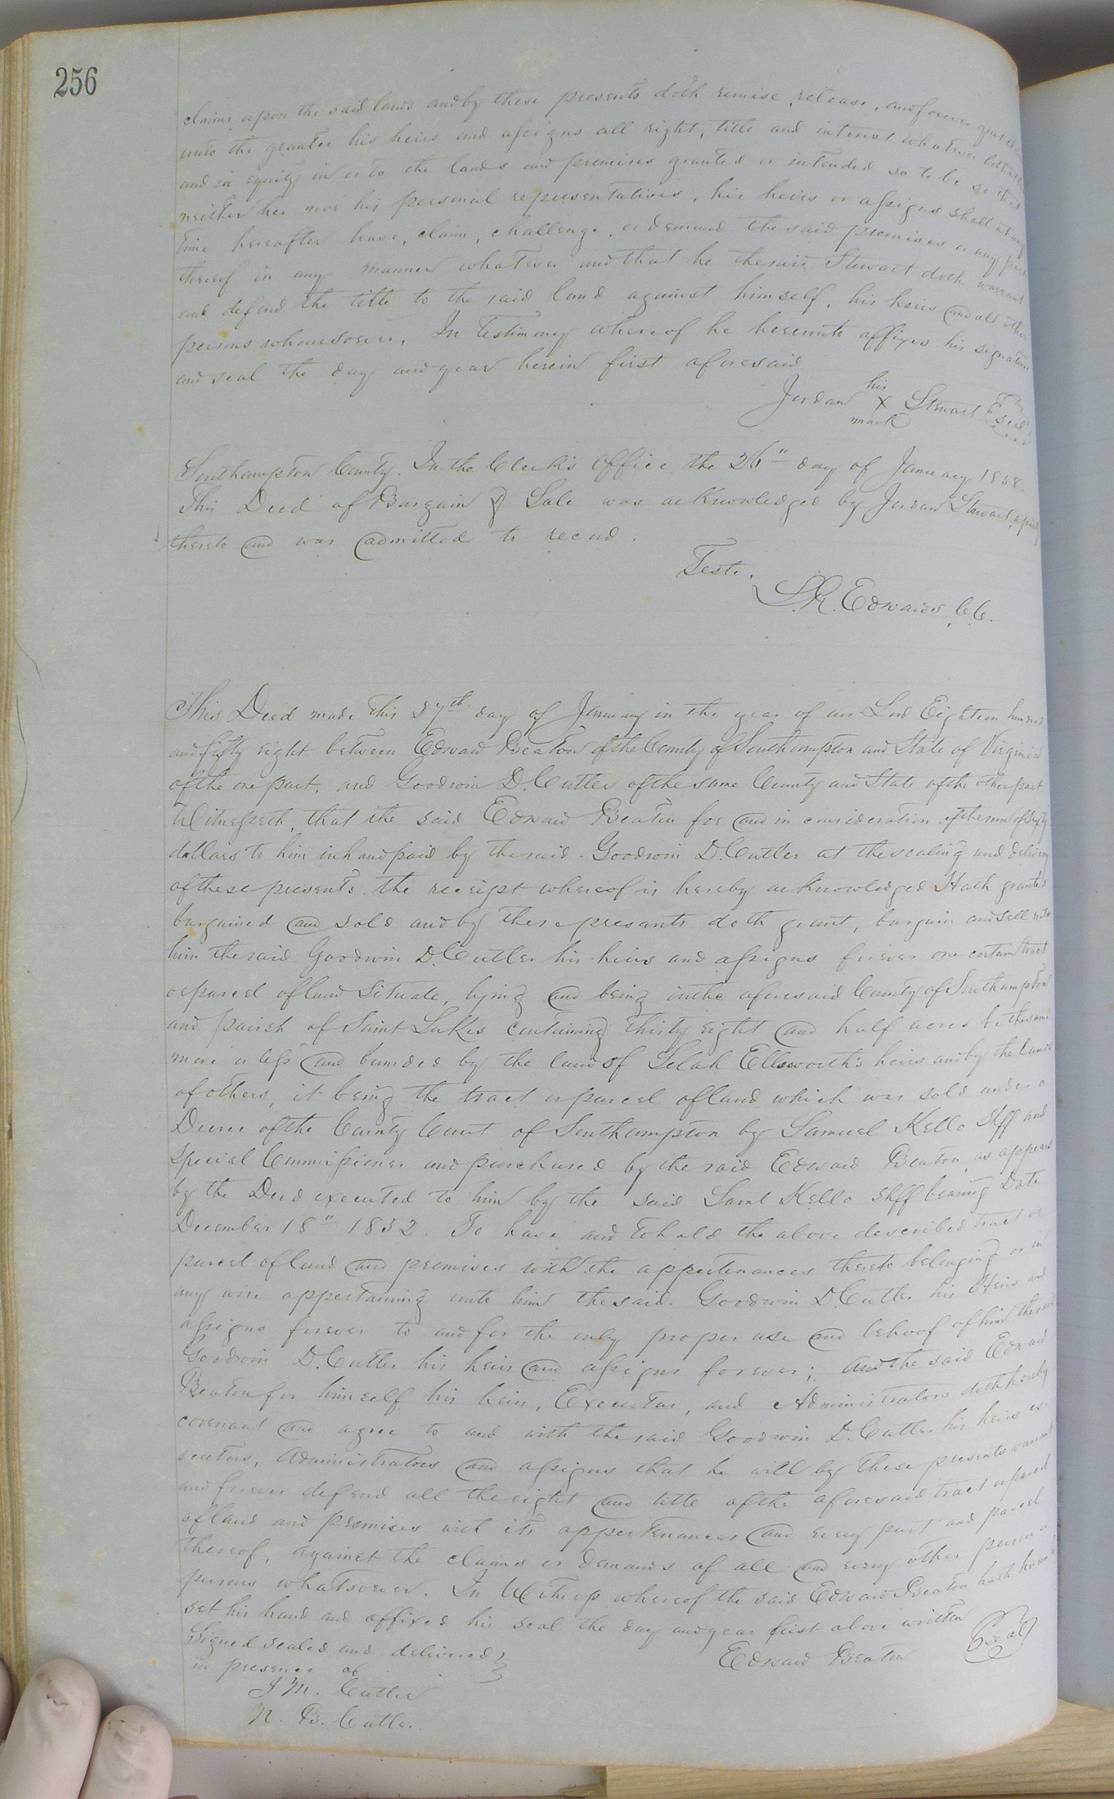 256
claims upon the said lands and by these presents doth remise, release, and forever quit
unto the grantee his heirs and assigns all right, title and interest whatever
and in equity in or to the lands and premises granted or intended so to be so that
neither he nor his personal representatives, his heirs or assigns shall at any
time hereafter have, claim, challenge, or demand the said premises or any part
thereof in any manner whatever and that he the said Stewart doth warrant
and defend the title to the said land against himself, his heirs and all other
persons whomsoever. In Testimony whereof he hereunto affixes his signature
and seal the day and year herein first aforesaid
his
Jordan X Stewart seal
mark
Southampton County. In the Clerk's Office the 26" day of January 1858.
This Deed of Bargain & Sale was acknowledged by Jordan Stewart, a party
thereto and was admitted to record.
Teste.
L.R. Edwards, CC.
This Deed made this 27th day of January in the year of our Lord Eighteen hundred
and fifty eight between Edward Beaton of the County of Southampton and State of Virginia
of the one part, and Goodwin D. Cutler of the same County and State of the other part
Witnesseth, that the said Edward Beaton for and in consideration of the sum of
dollars to him in hand paid by the said Goodwin D. Cutler at the sealing and delivery
of these presents the receipt whereof is hereby acknowledged Hath granted
bargained and sold and by these presants doth grant, bargain and sell unto
him the said Goodwin D. Cutler his heirs and assigns forever one certain tract
or parcel of land Situate, lying and being in the aforesaid County of Southampton
and parish of Saint Lukes containing thirty eight and half acres be the same
more or less and bounded by the land of Selah Ellsworth's heirs and by the lands
of others, it being the tract or parcel of land which was sold under a
Decree of the County Court of Southampton by Samuel Kello Shff and
Special Commissioner and purchased by the said Edward Beaton, as appears
by the Deed executed to him by the said Saml Kello Shff bearing Date
December 18" 1832. To have and to hold the above described tract or
parcel of land and premises with the appertenances thereto belonging or in
any wise appertaining unto him the said Goodwin D. Cutler his Heirs and
assigns forever to and for the only proper use and behoof of him the said
Goodwin D. Cutler his heirs and assigns forever; and the said Edward
Beaton for himself his heirs, Executors, and Administrators doth hereby
covenant and agree to and with the said Goodwin D. Cutler his heirs ex-
ecutors, Administrators and assigns that he will by these presents warrant
and forever defend all the right and title of the aforesaid tract or parcel
of land and premises with its appertenances and every part and parcel
thereof, against the claims or demands of all and every other person or
persons whatsoever. In Witness whereof the said Edward Beaton hath hereunto
set his hand and affixed his seal the day and year first above written
Signed sealed and delivered Edward Beaton Seal
in presence of
J M. Cutler
N. B. Cutler.